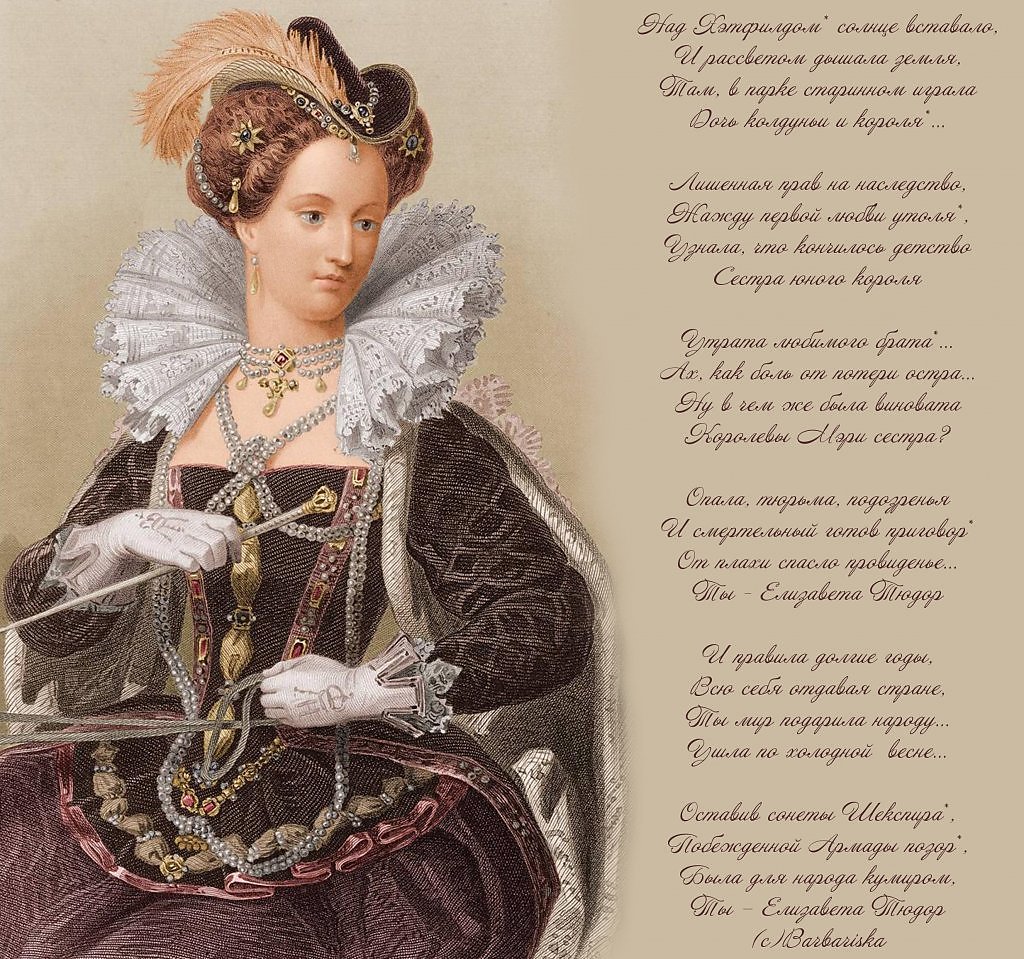 Над Хэтфилдом* солнце вставало,
И рассветом дышала земля,
Там, в парке старинном играла
Дочь колдуньи и короля*...
Лишенная прав на наследство,
Жажду первой любви утоля*,
Узнала, что кончилось детство
Сестра юного короля
Утрата любимого брата*...
Ах, как боль от потери остра...
Ну в чем же была виновата
Королевы Мэри сестра?
Опала, тюрьма, подозренья
И смертельный готов приговор*
От плахи спасло провиденье...
Ты - Елизавета Тюдор
И правила долгие годы,
Всю себя отдавая стране,
Ты мир подарила народу...
Ушла по холодной весне...
Оставив сонеты Шекспира*,
Побежденной Армады позор*,
Была для народа кумиром,
Ты - Елизавета Тюдор
(c)Barbariska